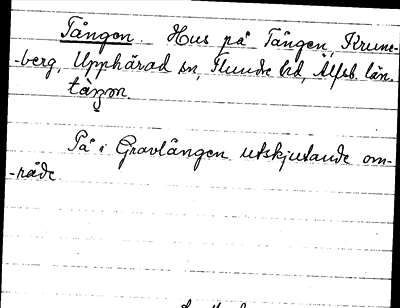 Tången. Hus på Tången, Krune-
-berg, Upphärad sn, Flundre hd, Älfsb. län.
tåŋən.
På i Gravlången utskjutande om-
-råde